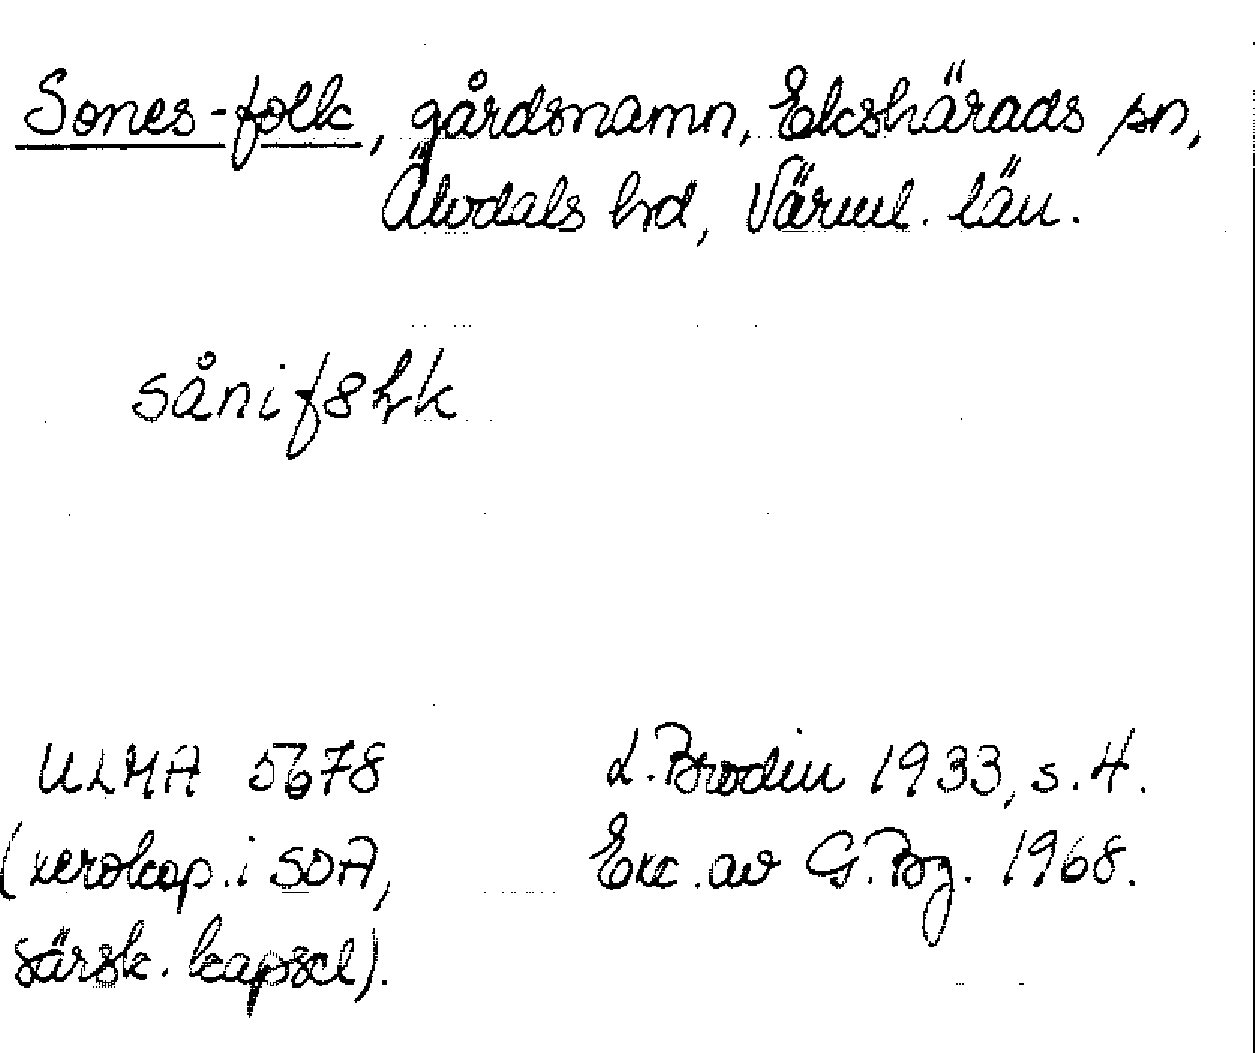 Sones-folk, gårdsnamn, Ekshärads sn,
Älvdals hd, Värml. län.
ULMA 5678
L. Brodin 1933, s. 4.
(xerokop. i SOA,
Exc. av G. Bg. 1968.
särsk. kapsel).